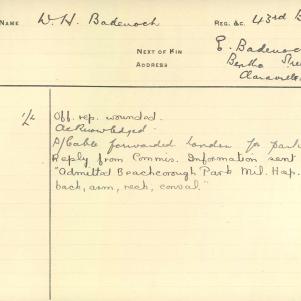 NAME W. H. Badenoch REG. &C. 43rd B
NEXT OF KIN E. Badenoc
ADDRESS Bertha Stree
Off. rep. wounded.
Acknowledged.
P/Cable forwarded London for parti
Reply from Commis. Information sent
"Admitted Beachcorough Park Mil. Hosp.
back, arm, neck, conval."